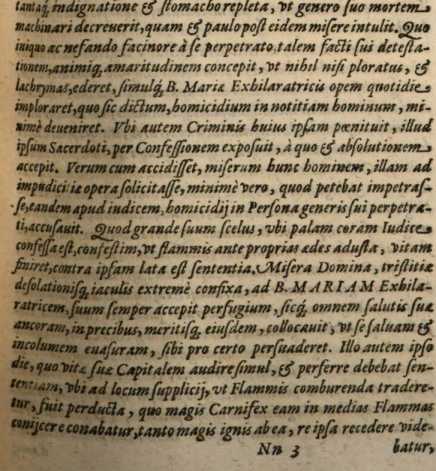 tantaq́, indignatione & stomacho repleta, vt genero suo mortem
machinari decreverit, quam & paulo post eidem misere intulit. Quo
iniquo ac nefando facinore à se perpetrato, talem facti sui detesta-
tionem, animiq, amaritudinem concepit, vt nihil nisi ploratus, &
lachrymas, ederet, simulq́, B. Mariæ Exhilaratricis opem quotidie
imploraret, quo sic dictum, homicidium in notitiam hominum, mi-
nimè deveniret. Vbi autem Criminis huius ipsam pœnituit, illud
ipsum Sacerdoti, per Confessionem exposuit, à quo & absolutionem
accepit. Verum cum accidisset, miserum hunc hominem, illam ad
impudicitiæ opera solicitasse, minimè vero, quod petebat impetras-
se, eandem apud iudicem, homicidij in Persona generis sui perpetra-
ti, accusauit. Quod grande suum scelus, vbi palam coram Iudice
confessa est, confestim, vt flammis ante proprias ædes adusta, vitam
finiret, contra ipsam lata est sententia. Misera Domina, tristitiæ
desolationisq́, iaculis extremè confixa, ad B. MARIAM Exhila-
ratricem, suum semper accepit perfugium, sicq́, omnem salutis suæ
ancoram, in precibus, meritisq́, eiusdem, collocauit, vt se saluam &
incolumem euasuram, sibi pro certo persuaderet. Illo autem ipso
die, quo vitæ suæ Capitalem audire simul, & perferre debebat sen-
tentiam, vbi ad locum supplicij, vt Flammis comburenda tradere-
tur, fuit perducta, quo magis Carnifex eam in medias Flammas
conijcere conabatur, tanto magis ignis ab ea, re ipsa recedere vide-
Nn 3 batur,